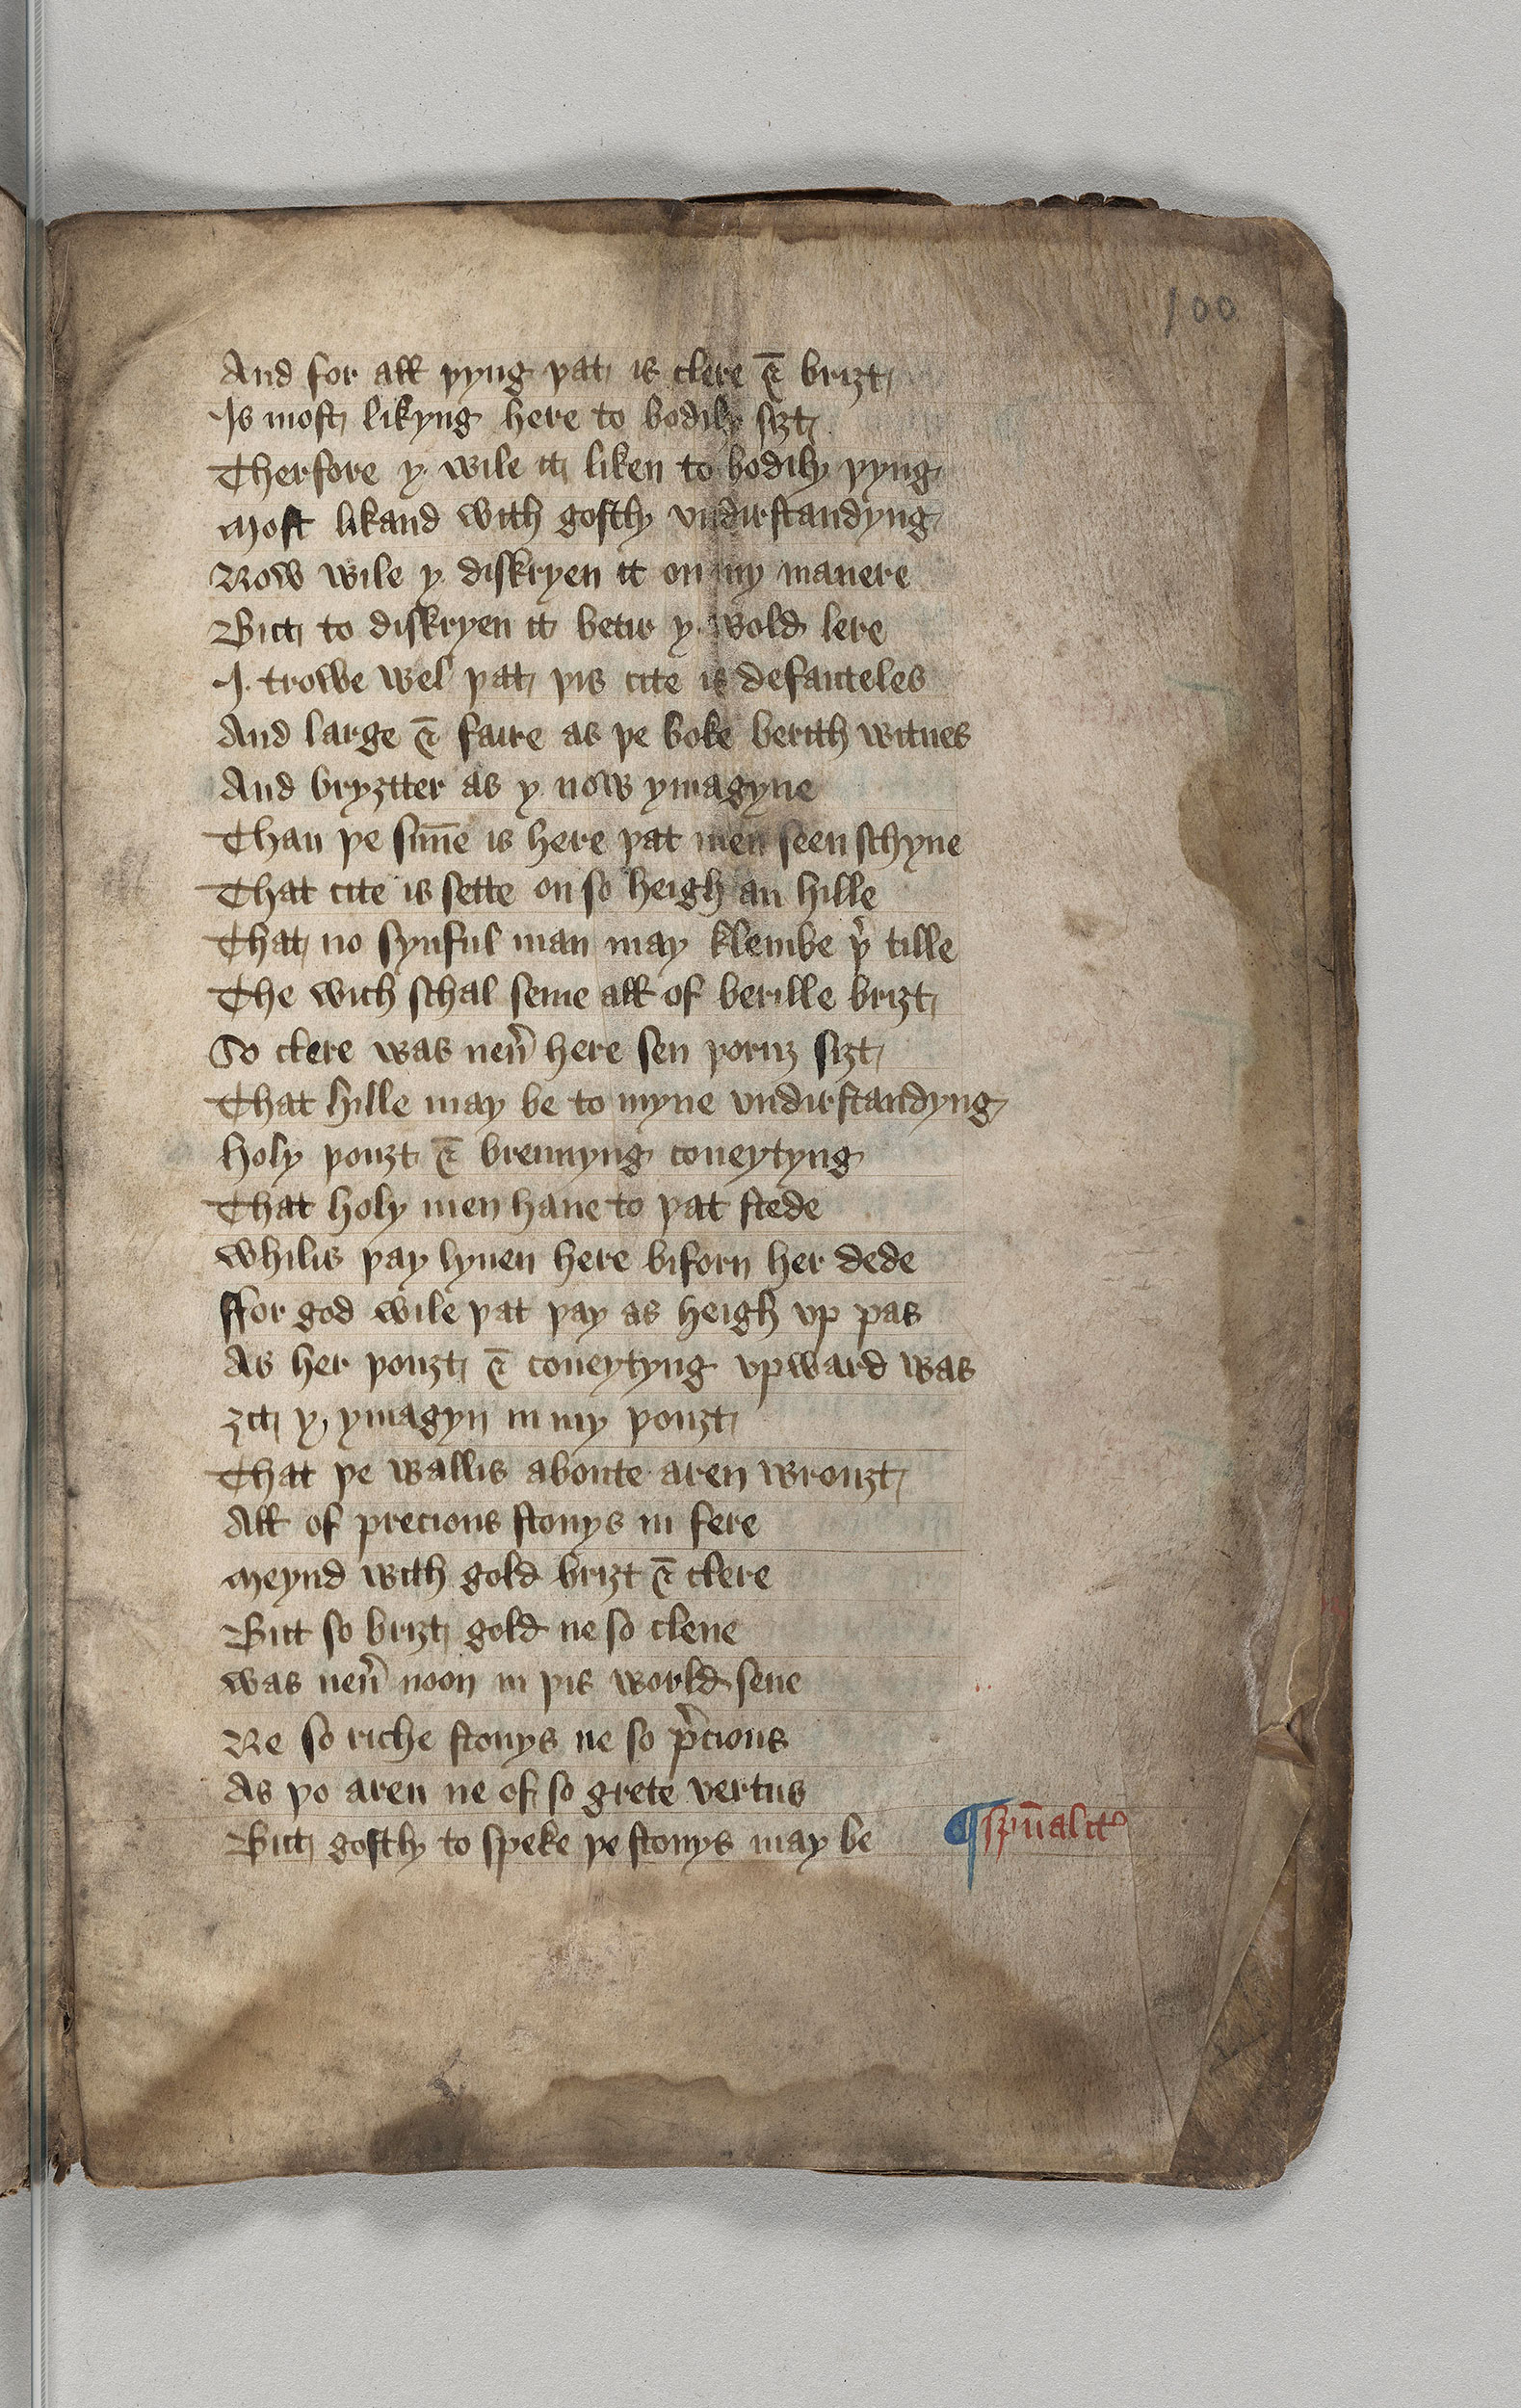 100
And for all þyng þat is clere & briȝt
Is most likyng here to bodily siȝt
Therfore y wile it liken to bodily þyng
Most likand with gostly vndirstandyng
Now wile y diskryen it on my manere
Bitt to diskryen it betir y wold lere
I trowe wel þat þis cite is defauteles
And large & faire as þe boke berith witnes
And bryȝtter as y now ymagyne
Than þe sun̄e is here þat men seen schyne
That cite is sette on so heigh an hille
That no synful man may klembe þ̉ tille
The wich schal seme all of berille briȝt
So clere was neủ here sen þoruȝ siȝt
That hille may be to myne vndirstandyng
holy þouȝt & brennyng coueytyng
That holy men haue to þat stede
whilis þay lyuen here biforn her dede
ffor god wile þat þay as heigh vp pas
As her þouȝt & coueytyng vpward was
ȝit y ymagyn in my þouȝt
That þe wallis aboute aren wrouȝt
All of precious stonys in fere
Meynd with gold briȝt & clere
Bitt so briȝt gold ne so clene
was neủ noon in þis world sene
Ne so riche stonys ne so p̉cious
As þo aren ne of so grete vertus
Bitt gostly to speke þe stonys may be
¶ sp̄ualit̉